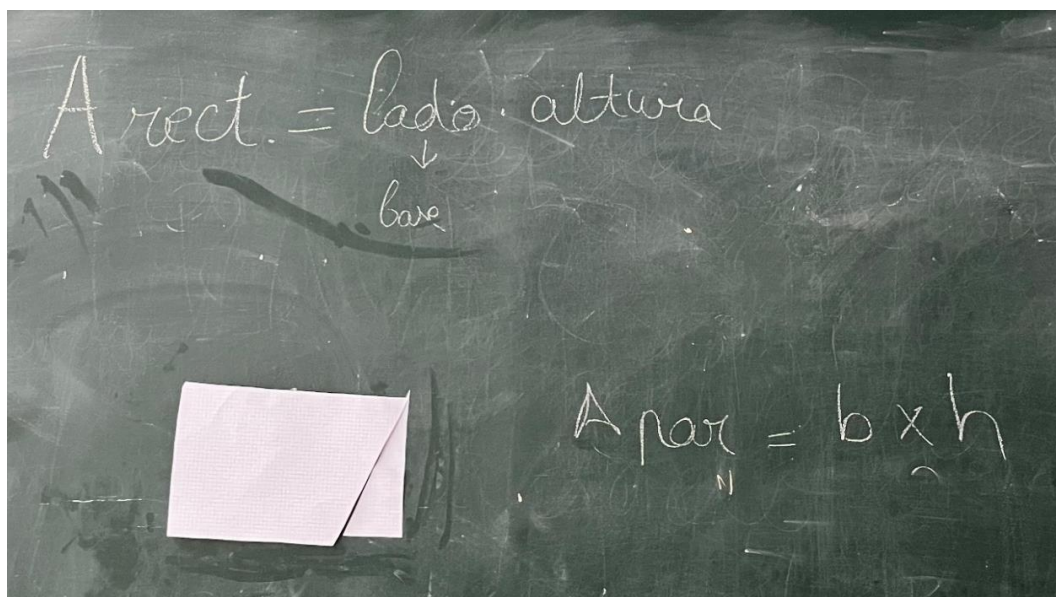 A rect. = lado · altura
↓
base
A par = b x h